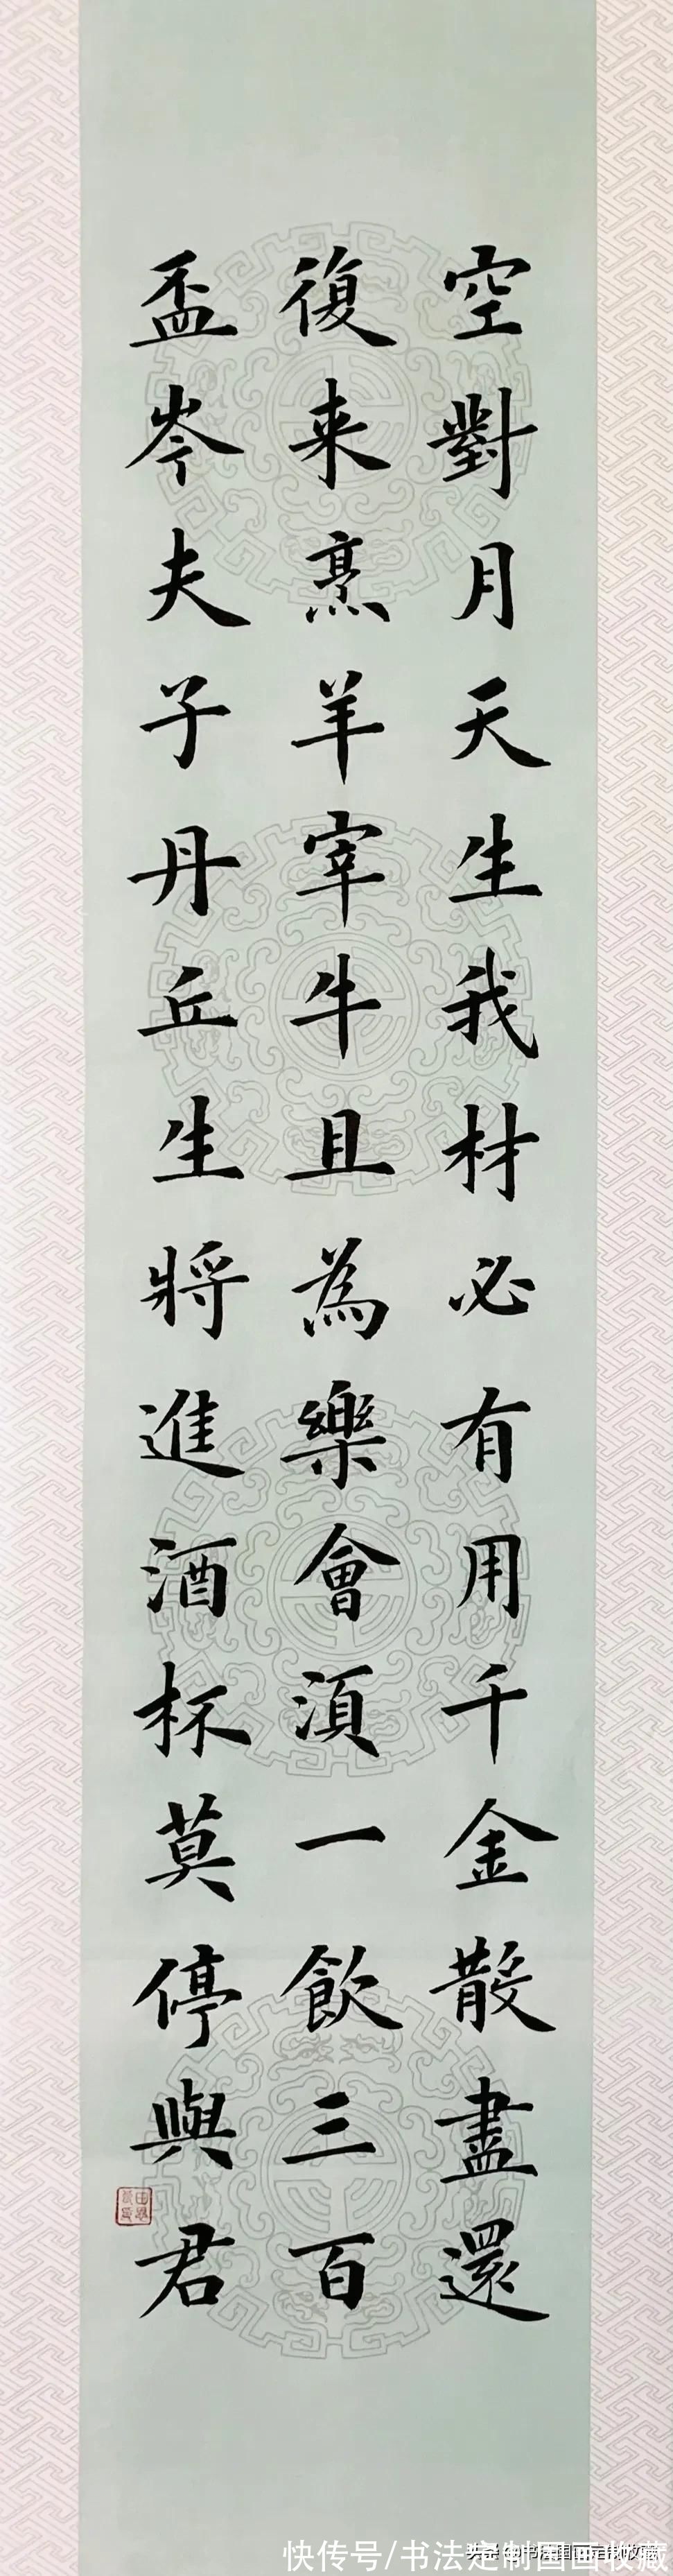 空對月天生我材必有用千金散盡還
復来烹羊宰牛且為樂會須一飲三百
盃岑夫子丹丘生將進酒杯莫停與君
快传号/书法定制国画收藏